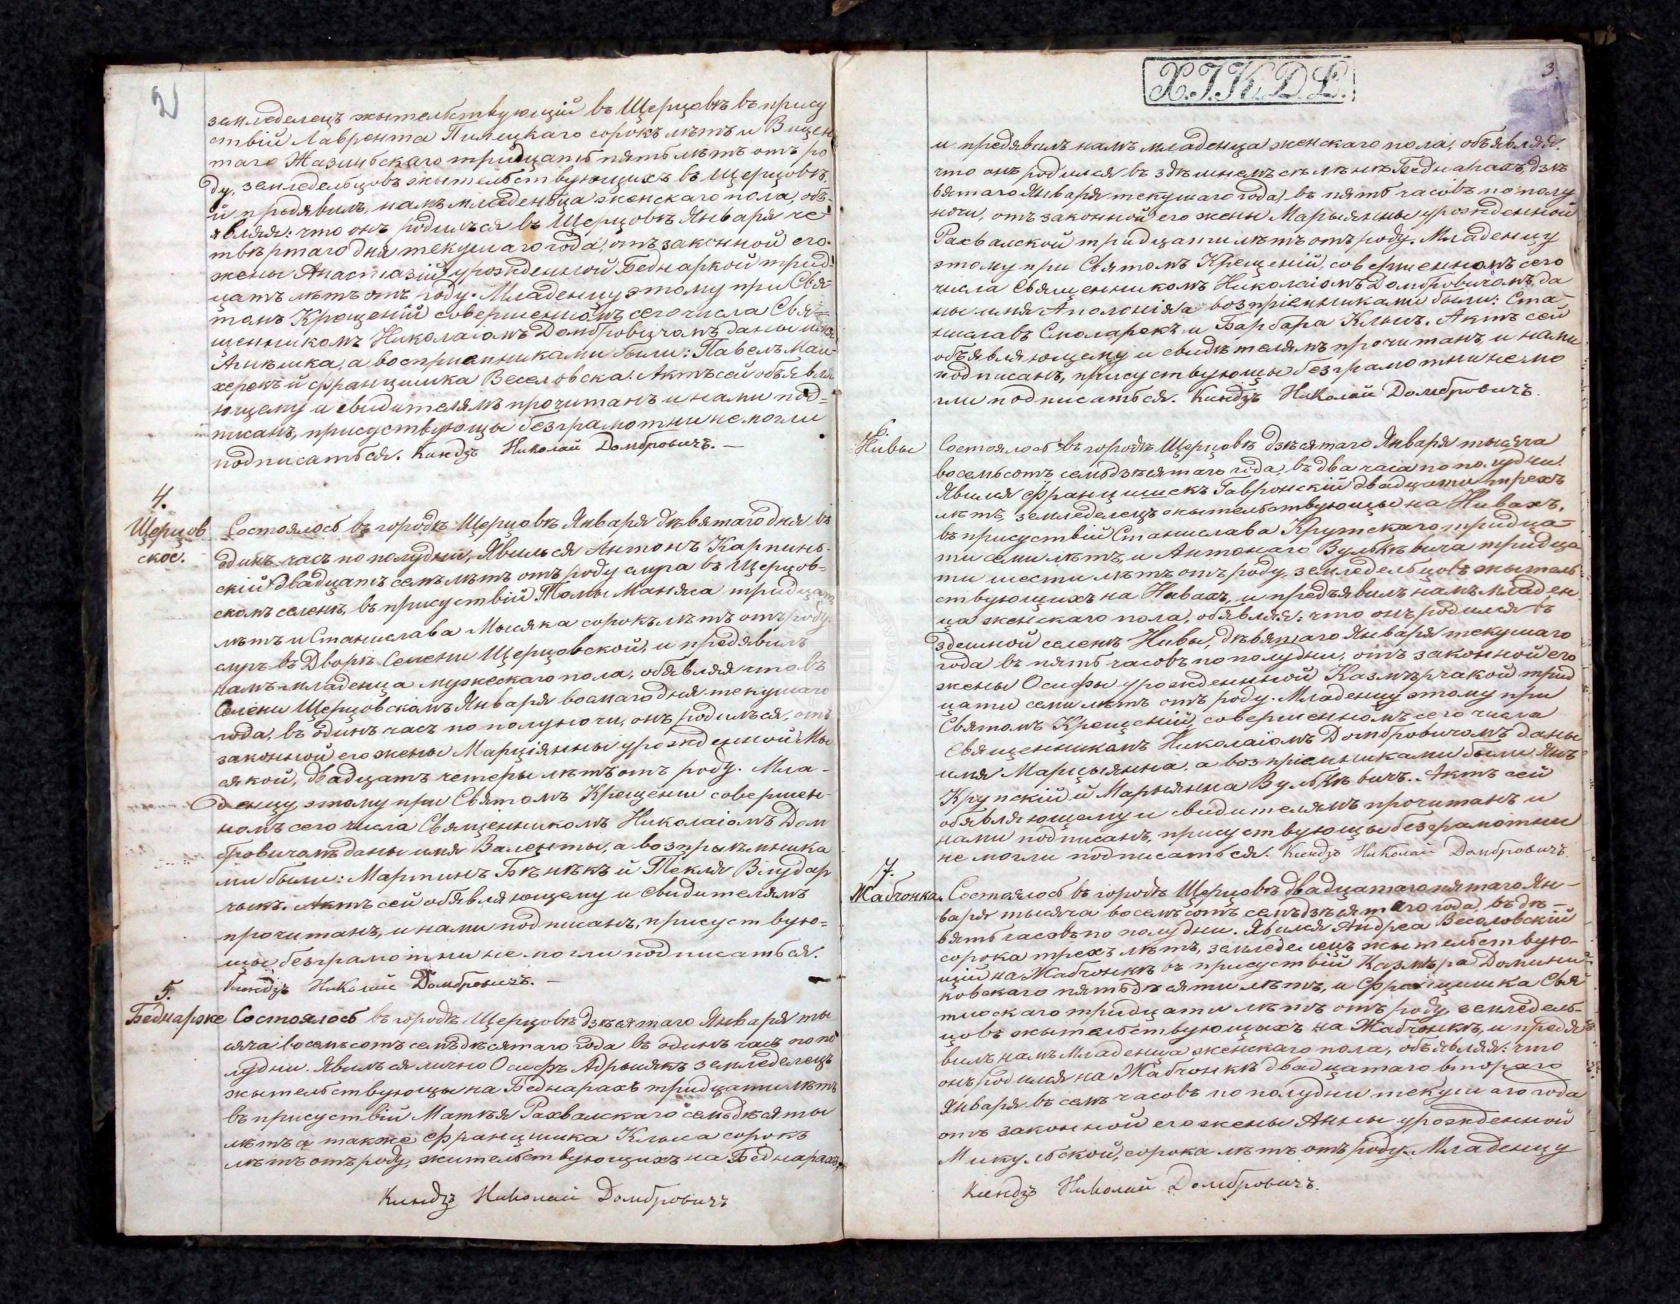 2
земледелецъ жительствующій въ Щерцовѣ въ прису
ствій Лаврента Пилецкаго сорокъ лѣтъ и Винцен
таго тридцать пять лѣтъ отъ ро
ду, земледельцовъ жительствующихъ въ Щерцовѣ,
й предявилъ намъ младенца женскаго пола, объ-
являя: что онъ родился въ Щерцовѣ Января че
твертаго дня текущаго года, отъ законной его
жены Анастазій урожденной Беднаркой трид-
цать лѣтъ отъ роду. Младенцу этому при Свя-
томъ Крещеній совершенномъ сего числа Свя-
щенникомъ Николаіомъ Домбровичомъ даны имя
Агнѣшка, а восприемниками были: Павелъ Май-
херекъ й Францишка Веселовска. Актъ сей объявля
ющему и свидителямъ прочитанъ и нами под=
писанъ, присуствующы безграмотни немогли
подписаться. Ксендзъ Николай Домбровичъ. —
4.
Щерцов
ское.
Состоялось въ городѣ Щерцовѣ Января девятаго дня въ
одинъ часъ по полудни, Явился Антонъ Карпинь-
скій двадцать семъ лѣтъ отъ роду слуга въ Щерцов-
скомъ селенѣ, въ присуствій Томы Маняса тридцать
лѣтъ и Станислава Мысяка сорокъ лѣтъ отъ роду
слугъ въ Дворѣ Селени Щерцовской, и предявилъ
намъ младенца мужескаго пола, объявляя что въ
Селени Щерцовскомъ Января восмаго дня текущаго
года, въ одинъ часъ по полуночи, онъ родилься, отъ
законной его жены Марціянны урожденной Мы
сякой, двадцать четеры лѣтъ отъ роду. Мла-
денцу этому при Святомъ Крещени совершен-
номъ сего числа Священникомъ Николаіомъ Дом
бровичомъ даны имя Валенты, а
ми были: Мартинъ и Текля Влудар
чыкъ. Актъ сей объявляющему и свидителямъ
прочитанъ, и нами подписанъ, присуствую=
щы безграмотни не могли подписаться.
Ксендзъ Николай Домбровичъ. —
5.
Беднарже
Состоялось въ городѣ Щерцовѣ дзѣсятаго Января ты
сяча восемьсотъ семьдѣсятаго года въ одинъ часъ попо
лудни. Явился лично Осифъ Адрыякъ земледелецъ
жительствующы на Беднарахъ тридцати лѣтъ
въ присуствій Матѣя Рахвалскаго семьдѣсяты
лѣтъ а также Францишка Клыса сорокъ
лѣтъ отъ роду, жительствующихъ на Беднарахъ,
Ксендзъ Николай Домбровичъ
X.I.K.D.L.
3.
и предявилъ намъ младенца женскаго пола, объявляя:
что онъ родился въ здѣшнемъ селѣнѣ Беднарахъ дзѣ
вятаго Января текущаго года, въ пять часовъ по полу
ночи, отъ законной его жены Марыянны урожденной
Рахвалской тридцати лѣтъ отъ роду. Младенцу
этому при Святомъ Крещеній, совершенномъ сего
числа Священникомъ Николаіомъ Домбровичомъ да
ны имя Аполонія а возприемниками были: Ста-
ниславъ Смоларекъ и Барбара Клысъ. Актъ сей
объявляющему и свидѣтелямъ прочитанъ и нами
подписанъ, присуствующы безграмотни немо
гли подписаться. Ксендзъ Николай Домбровичъ.
6.
Нивы
Состоялось въ городѣ Щерцовѣ дзѣсятаго Января тысяча
восемьсотъ семьдзѣсятаго года, въ два часа по полудни.
Явился Францишекъ Гавронскій двадцати трехъ
лѣтъ, земледелецъ жительствующы на Нивахъ,
въ присуствій Станислава Крупскаго тридца-
ти семи лѣтъ, и Антонаго Вулькевича тридца
ти шести лѣтъ отъ роду, земледельцовъ житель
ствующихъ на Нивахъ, и предъявилъ намъ младен
ца женскаго пола, объявляя: что онъ родился въ
здешной селенѣ Нивы, дѣвятаго Января текущаго
года въ пять часовъ по полудни, отъ законной его
жены Осифы урожденной Казмѣрчакой трид
цати семи лѣтъ отъ роду. Младенцу этому при
Святомъ Крещеній, совершенномъ сего числа
Священникомъ Николаіомъ Домбровичомъ даны
имя Марцыянна, а возприемниками были Янъ
Крупскій й Марыянна Вулькевичъ. Актъ сей
объявляющему и свидителямъ прочитанъ и
нами подписанъ, присуствующы безграмотни
не могли подписаться. Ксендзъ Николай Домбровичъ
7.
Жабчонка.
Состоялось въ городѣ Щерцовѣ двадцатаго пятаго Ян-
варя тысяча восемъсотъ семъдзѣятаго года, въ дѣ-
вять часовъ по полудни. Явился Андреа Весоловскій
сорока трехъ лѣтъ, земледелецъ жительствую-
щій на Жабчонкѣ въ присуствій Казмѣра Домини
ковскаго пятьдѣсяти лѣтъ, и Францишка Свя
тлоскаго тридцати лѣтъ отъ роду земледель-
цовъ жительствующыхъ на Жабчонкѣ, и предя
вилъ намъ Младенца женскаго пола, объявляя: что
онъ родился на Жабчонкѣ двадцатаго втораго
Января въ семъ часовъ по полудни текущаго года
отъ законной его жены Анны урожденной
Микульской, сорока лѣтъ отъ роду. Младенцу
Ксендзъ Николай Домбровичъ.